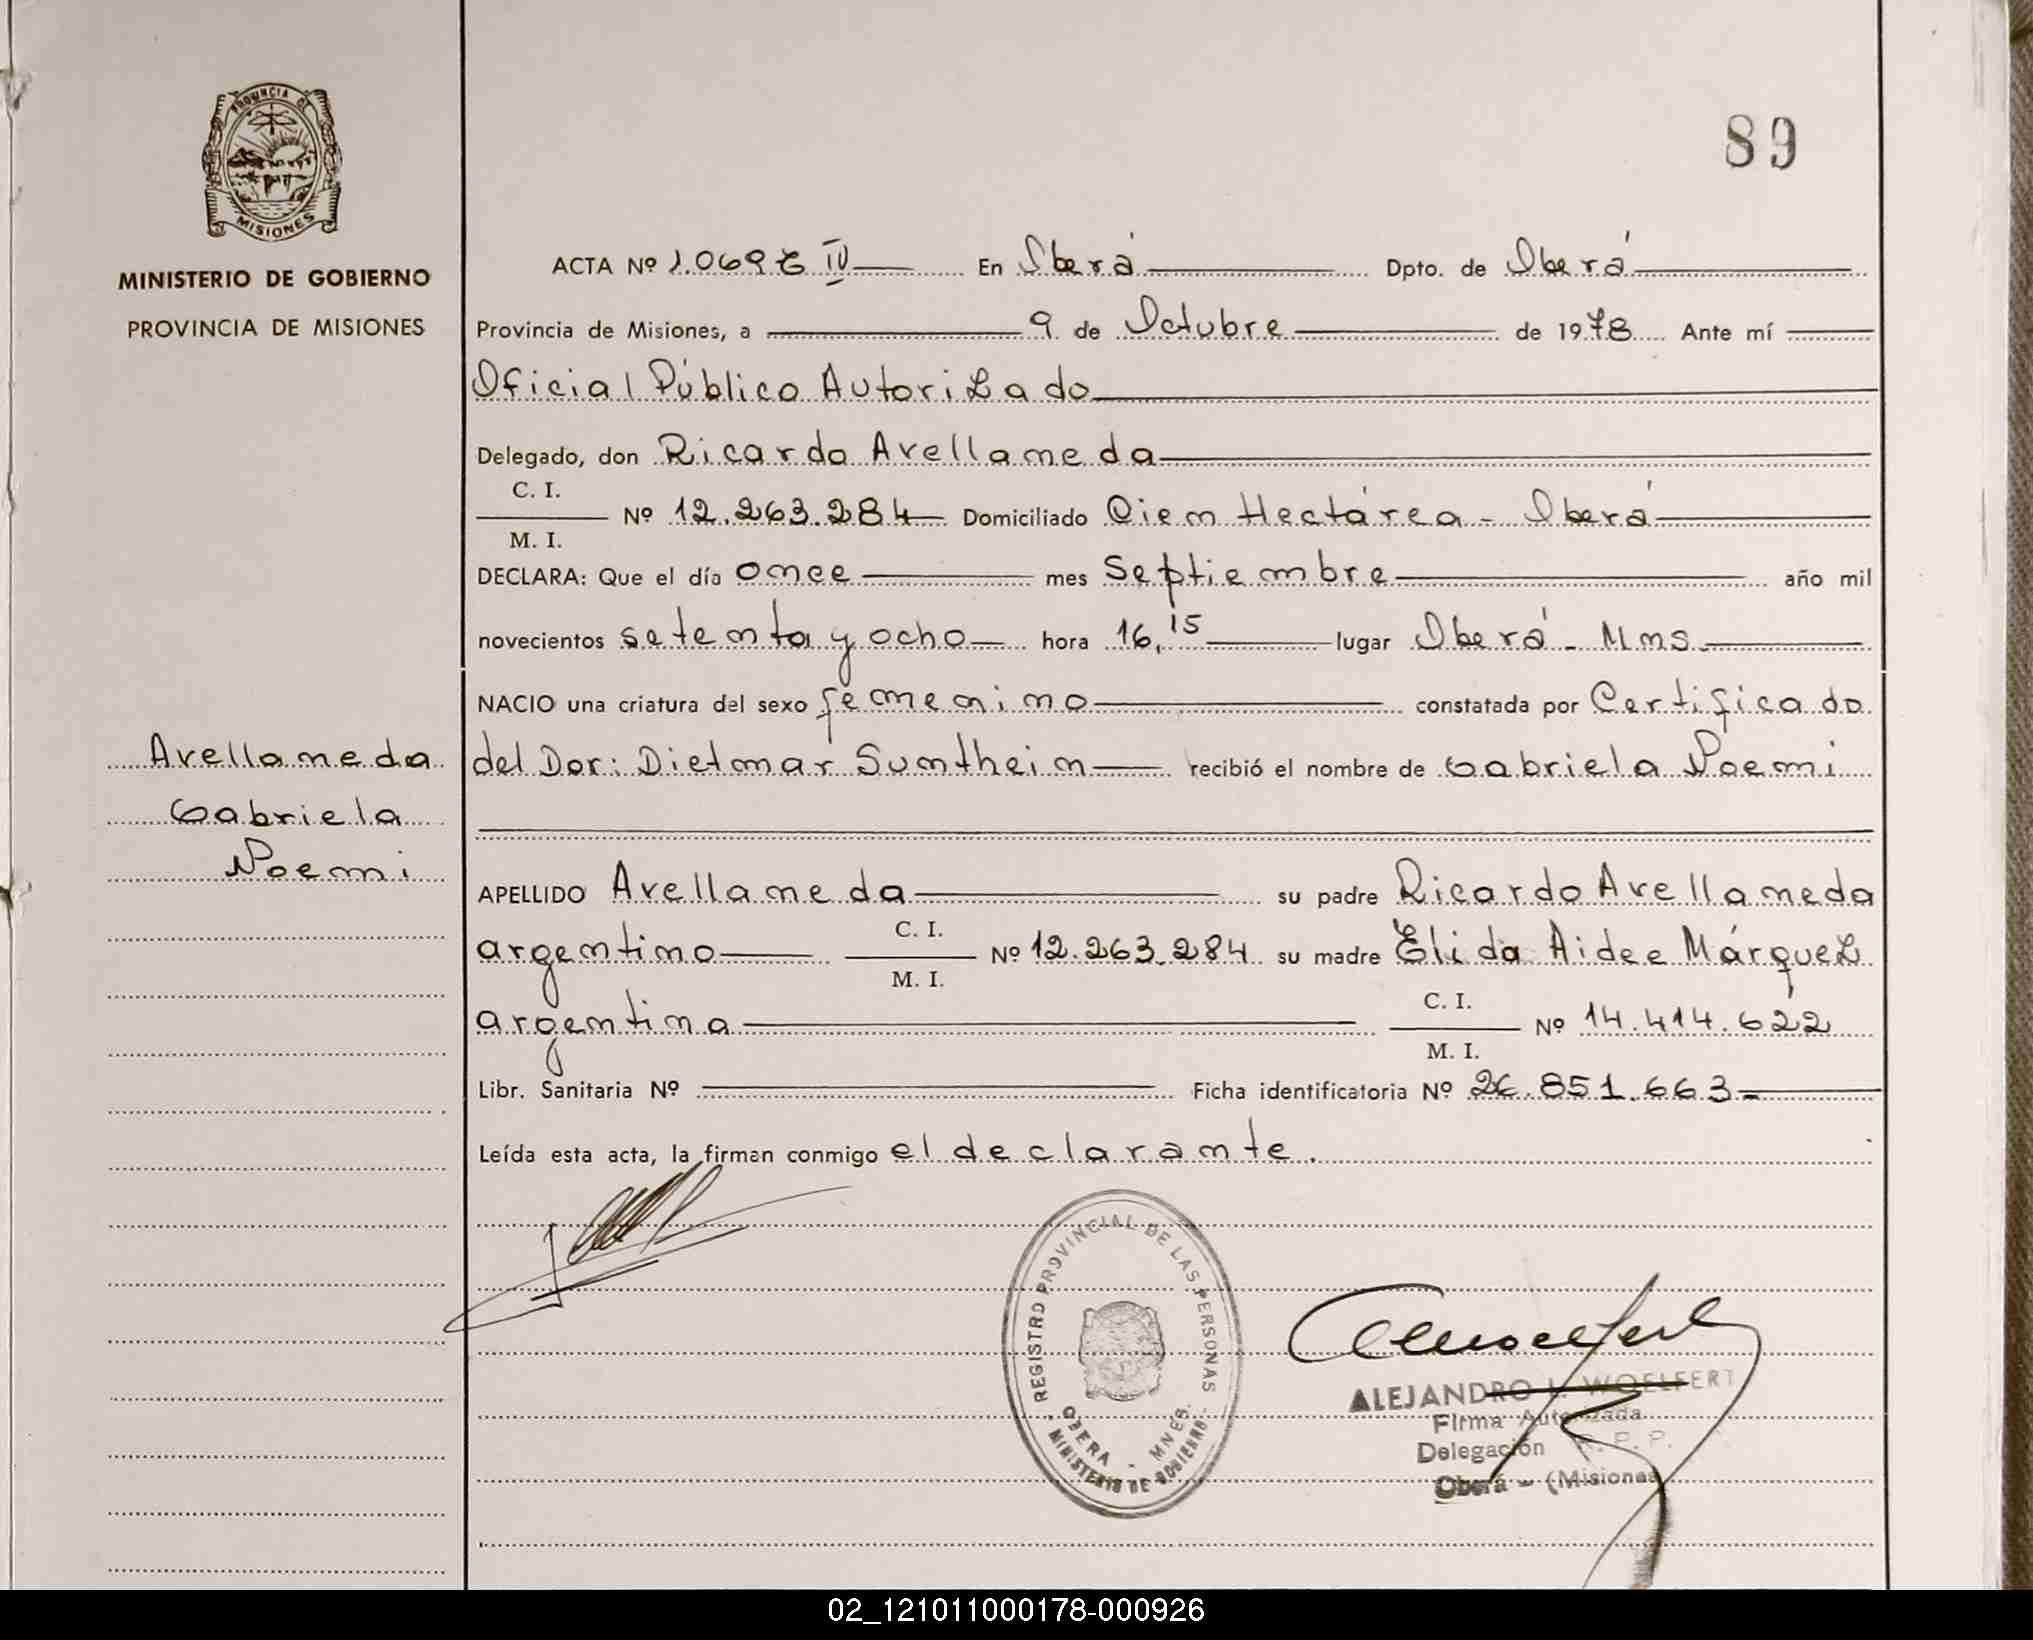 PROVINCIA DE
MISIONES
MINISTERIO DE GOBIERNO
PROVINCIA DE MISIONES
89
ACTA Nº 1.069 T IV En Oberá Dpto. de Oberá
Provincia de Misiones, a 9 de Octubre de 1978 Ante mí
Oficial Público Autorizado
Delegado, don Ricardo Avellaneda
C. I.
Nº 12.263.284 Domiciliado Cien Hectárea - Oberá
M. I.
DECLARA: Que el día once mes Septiembre año mil
novecientos setenta y ocho hora 16,15 lugar Oberá - Mns
NACIO una criatura del sexo femenino constatada por Certificado
Avellaneda del Dor: Dietmar Sumtheim recibió el nombre de Gabriela Noemi
Gabriela
Noemi
APELLIDO Avellaneda su padre Ricardo Avellaneda
C. I.
argentino Nº 12.263.284 su madre Elida Aidee Márquez
M. I.
C. I.
argentina Nº 14.414.622
M. I.
Libr. Sanitaria Nº Ficha identificatoria Nº 26.851.663-
Leída esta acta, la firman conmigo el declarante.
REGISTRO PROVINCIAL DE LAS PERSONAS
OBERA - MNES.
- MINISTERIO DE GOBIERNO -
ALEJANDRO L. WOELFERT
Firma Autorizada
Delegación R. P. P.
Oberá - (Misiones
02_121011000178-000926